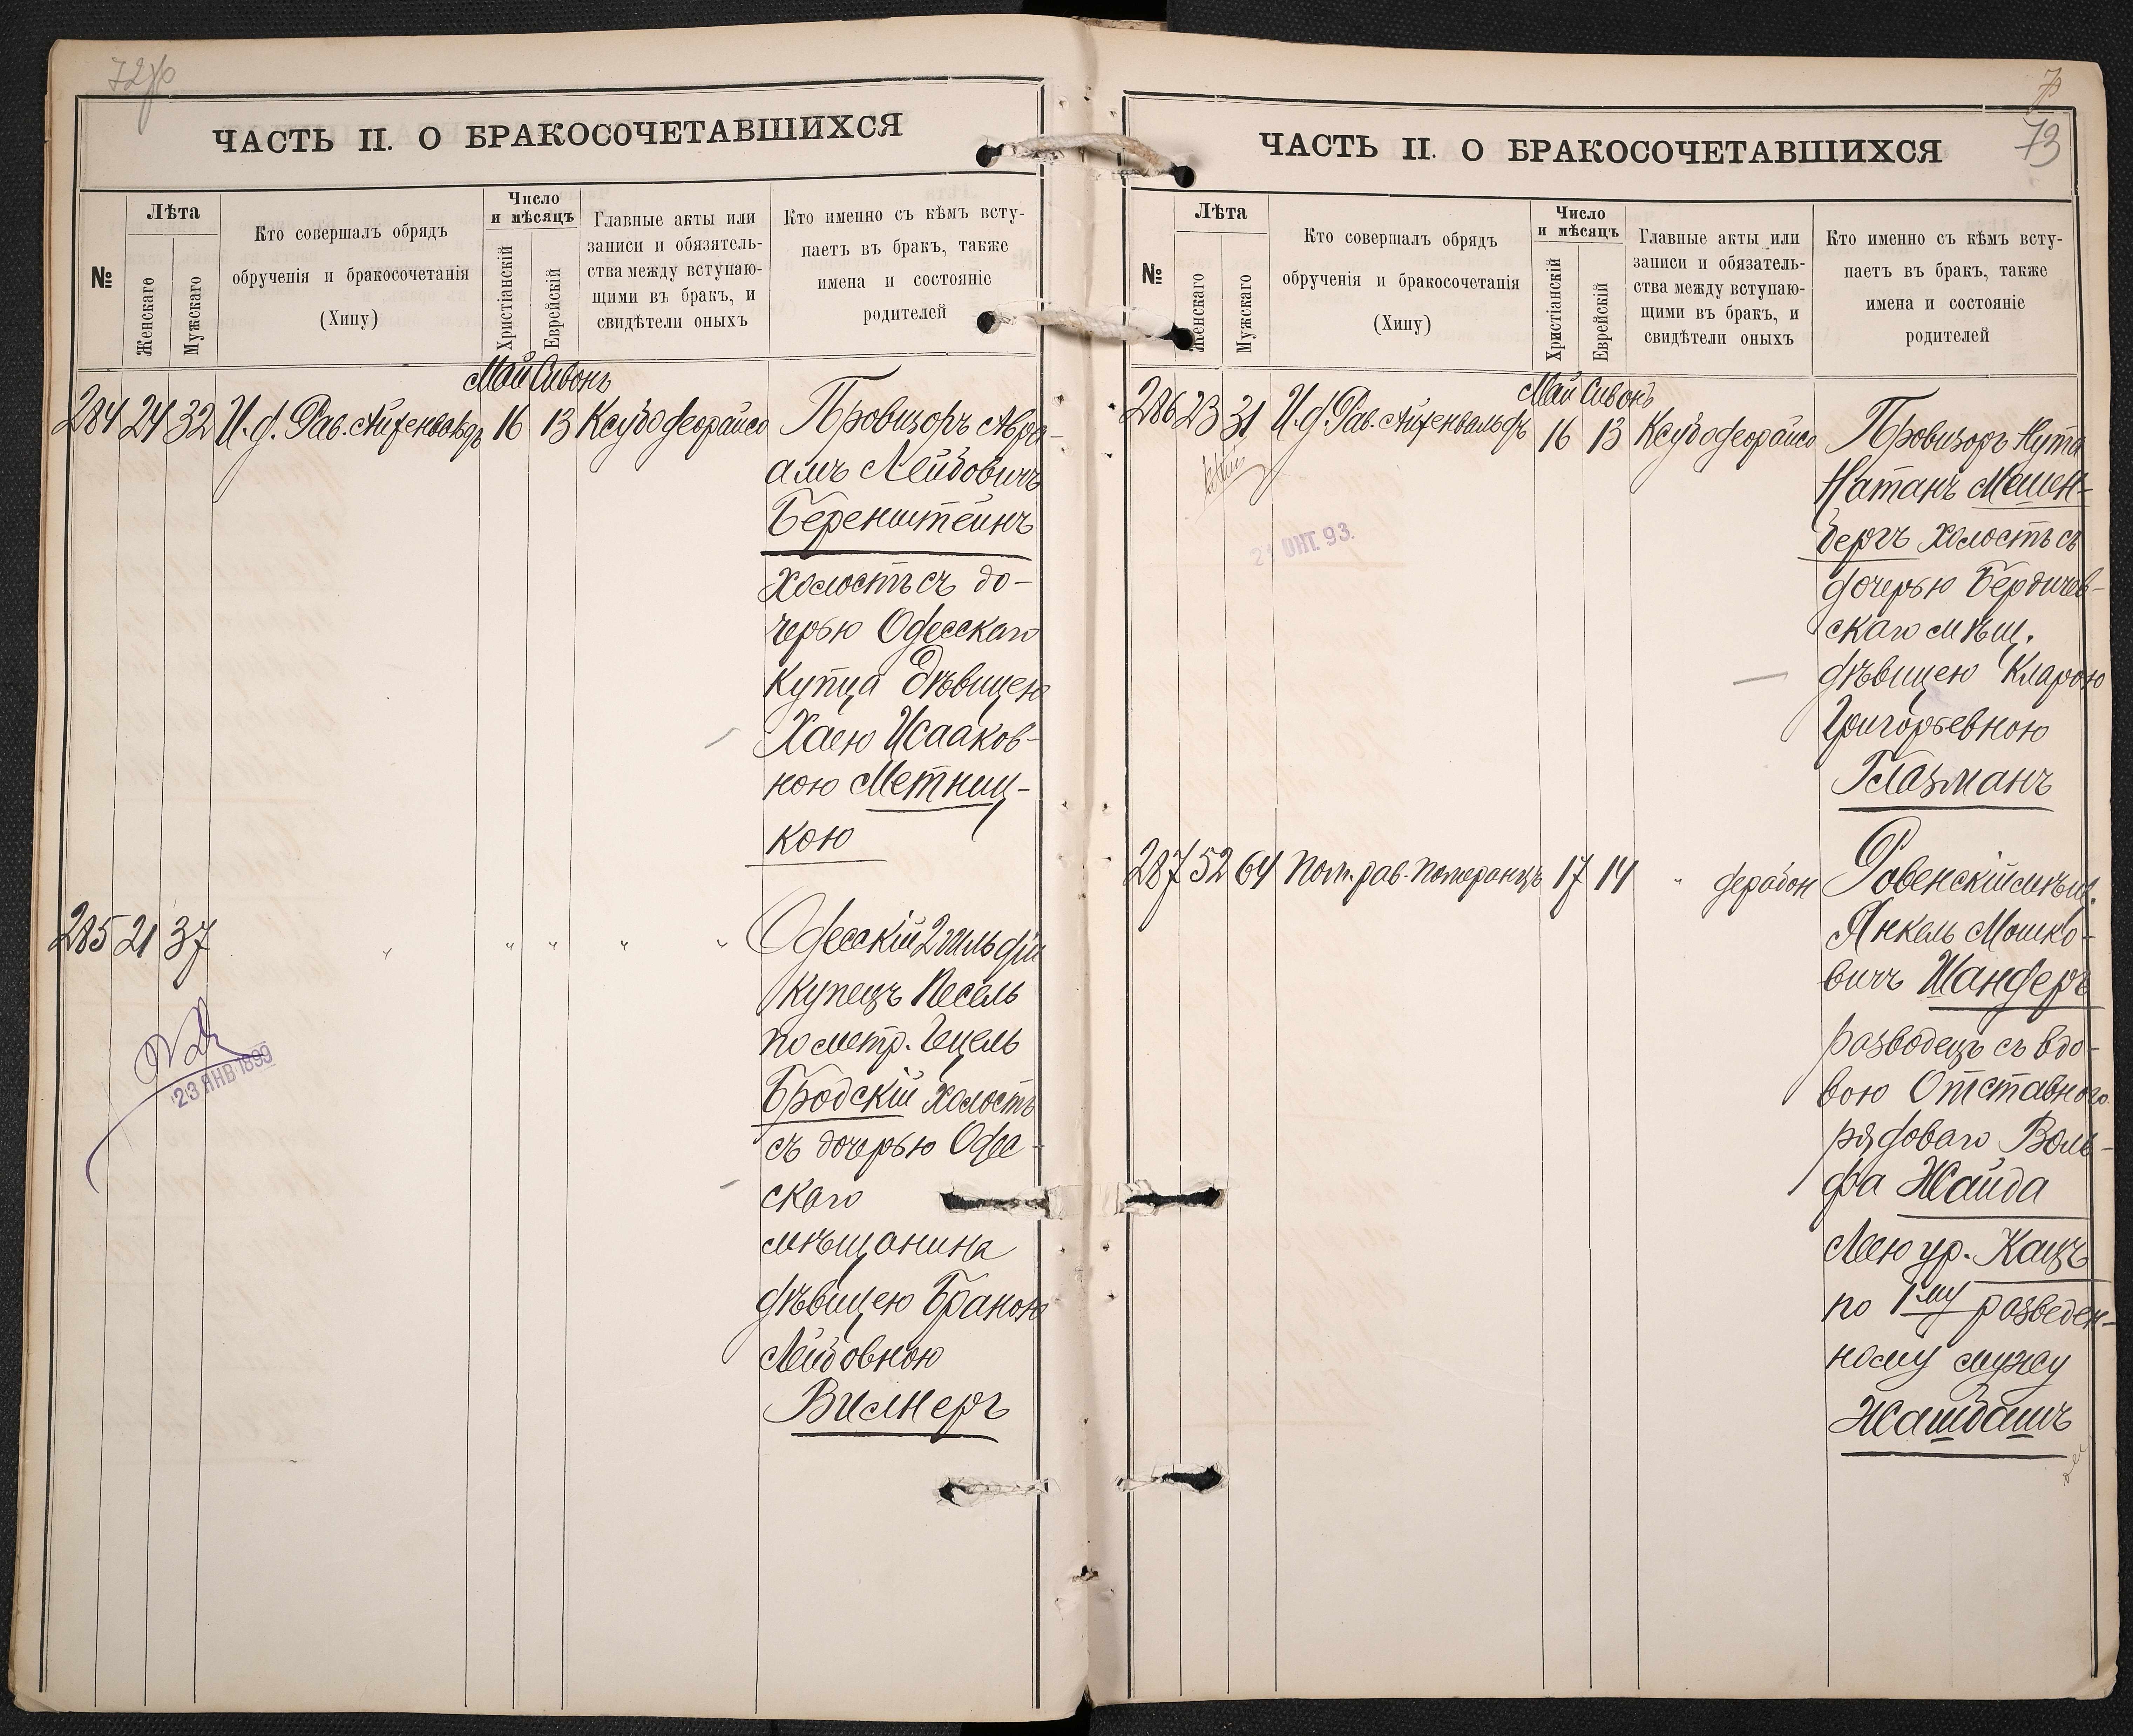 72об
ЧАСТЬ II. О БРАКОСОЧЕТАВШИХСЯ
№
Лѣта
Женскаго
Мужскаго
Кто совершалъ обрядъ
обрученія и бракосочетанія
(Хипу)
Число
и мѣсяцъ
Христіанскій
Еврейскій
Главные акты или
записи и обязятель-
ства между вступаю-
щими въ бракъ, и
свидѣтели оныхъ
Кто именно съ кѣмъ всту-
паетъ въ бракъ, также
имена и состояніе
родителей
Май Сивонъ
284 24 32 И. д. Рав. Айзенвальдъ 16 13 Ксубо деорайсо Провизоръ Авра-
амъ Лейбовичъ
Беренштейнъ
холостъ съ до-
черью Одесскаго
купца дѣвицею
Хаею Исааков-
ною Метниц-
кою
285 21 37 " " " " " Одесскій 2 гильдіи
купецъ Песель
по метр. Гецель
Бродскій холостъ
съ дочерью Одес-
скаго
мѣщанина
дѣвицею Браною
Лейбовною
Вилнеръ
23 ЯНВ 1899
73
ЧАСТЬ II. О БРАКОСОЧЕТАВШИХСЯ
№
Лѣта
Женскаго
Мужскаго
Кто совершалъ обрядъ
обрученія и бракосочетанія
(Хипу)
Число
и мѣсяцъ
Христіанскій
Еврейскій
Главные акты или
записи и обязатель-
ства между вступаю-
щими въ бракъ, и
свидѣтели оныхъ
Кто именно съ кѣмъ всту-
паетъ въ бракъ, также
имена и состояніе
родителей
Май Сивонъ
286 23 31 И. д. Рав. Айзенвальдъ 16 13 Ксубо деорайсо Провизоръ Нута
Натанъ Мешен-
бергъ холостъ съ
дочерью Бердичев-
скаго мѣщ.
дѣвицею Кларою
Григорьевною
Глазманъ
ОКТ. 93.
287 52 64 Пом. рав. Померанцъ 17 14 " дерабон Ровенскій мѣщ.
Янкель Мошко-
вичъ Шандеръ
разводецъ съ вдо-
вою Отставного
рядового Воль-
фа Жайда
Леею ур. Кацъ
по 1му разведен-
ному мужу
Жашдашъ